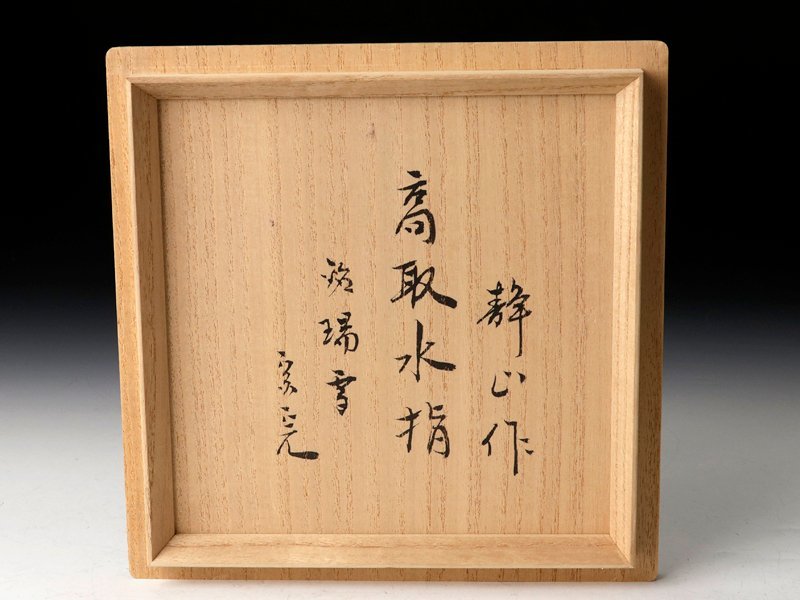 静山作
高取水指
銘瑞雪